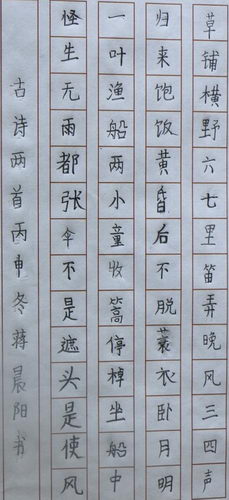 草铺横野六七里笛弄晚风三四声
归来饱饭黄昏后不脱蓑衣卧月明
一叶渔船两小童收篙停棹坐船中
怪生无雨都张伞不是遮头是使风
古诗两首丙申冬蒋晨阳书